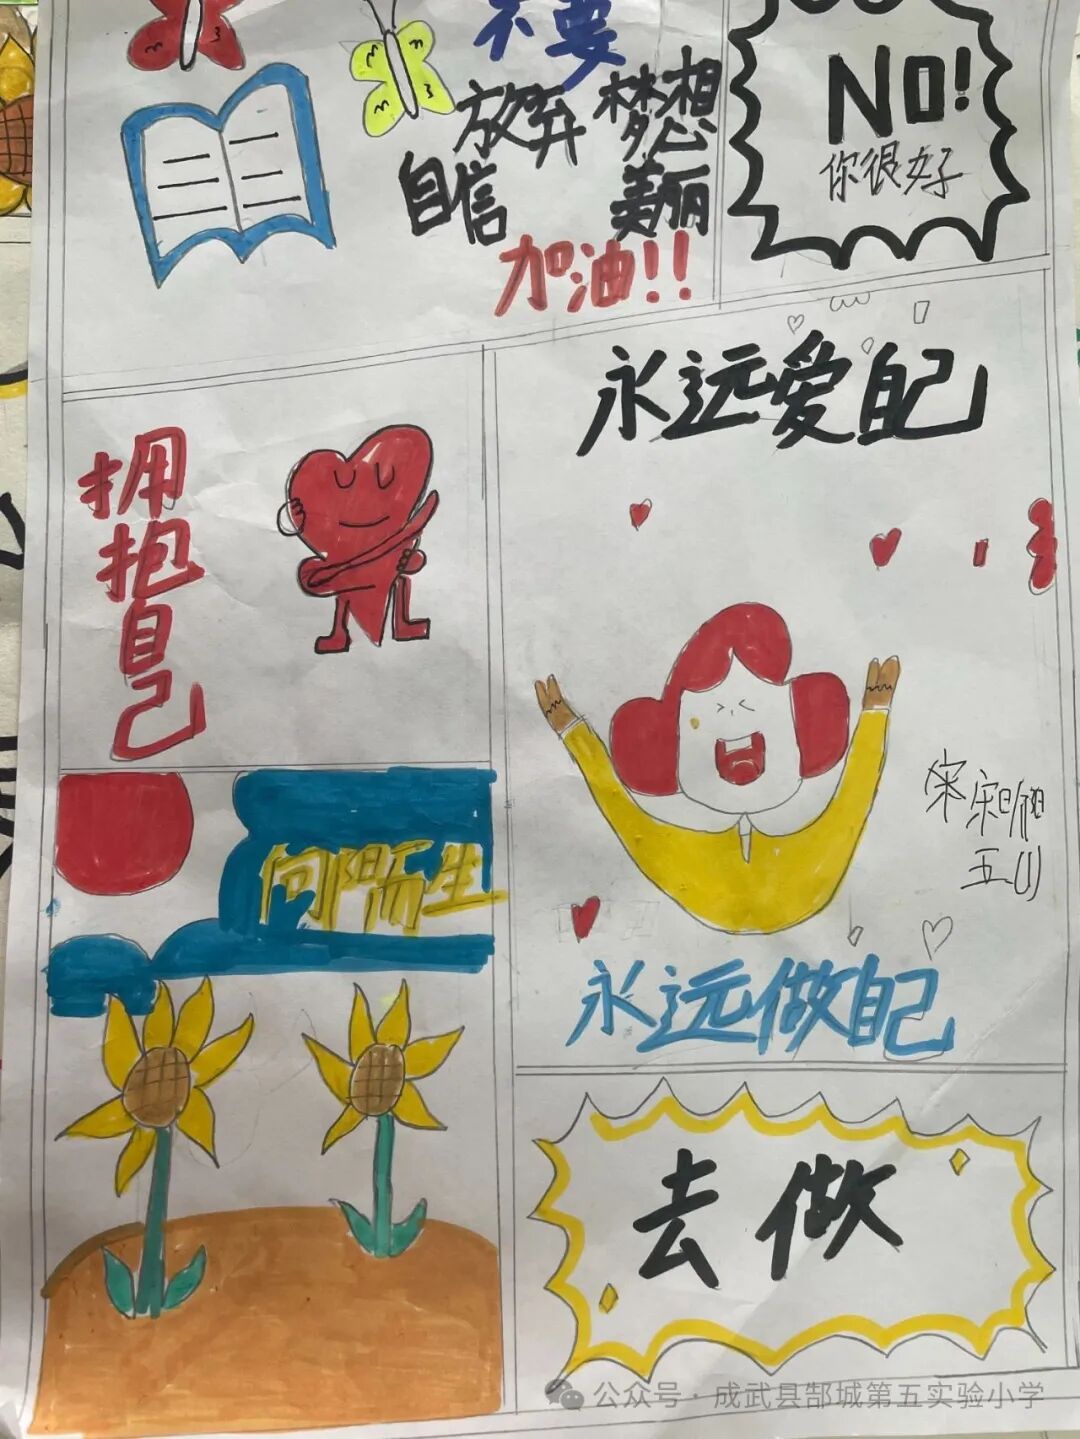 不要
放弃 梦想
自信 美丽
加油!!
NO!
你很好
永远爱自己
拥抱自己
向阳而生
五(1)
永远做自己
去做
公众号·成武县郜城第五实验小学